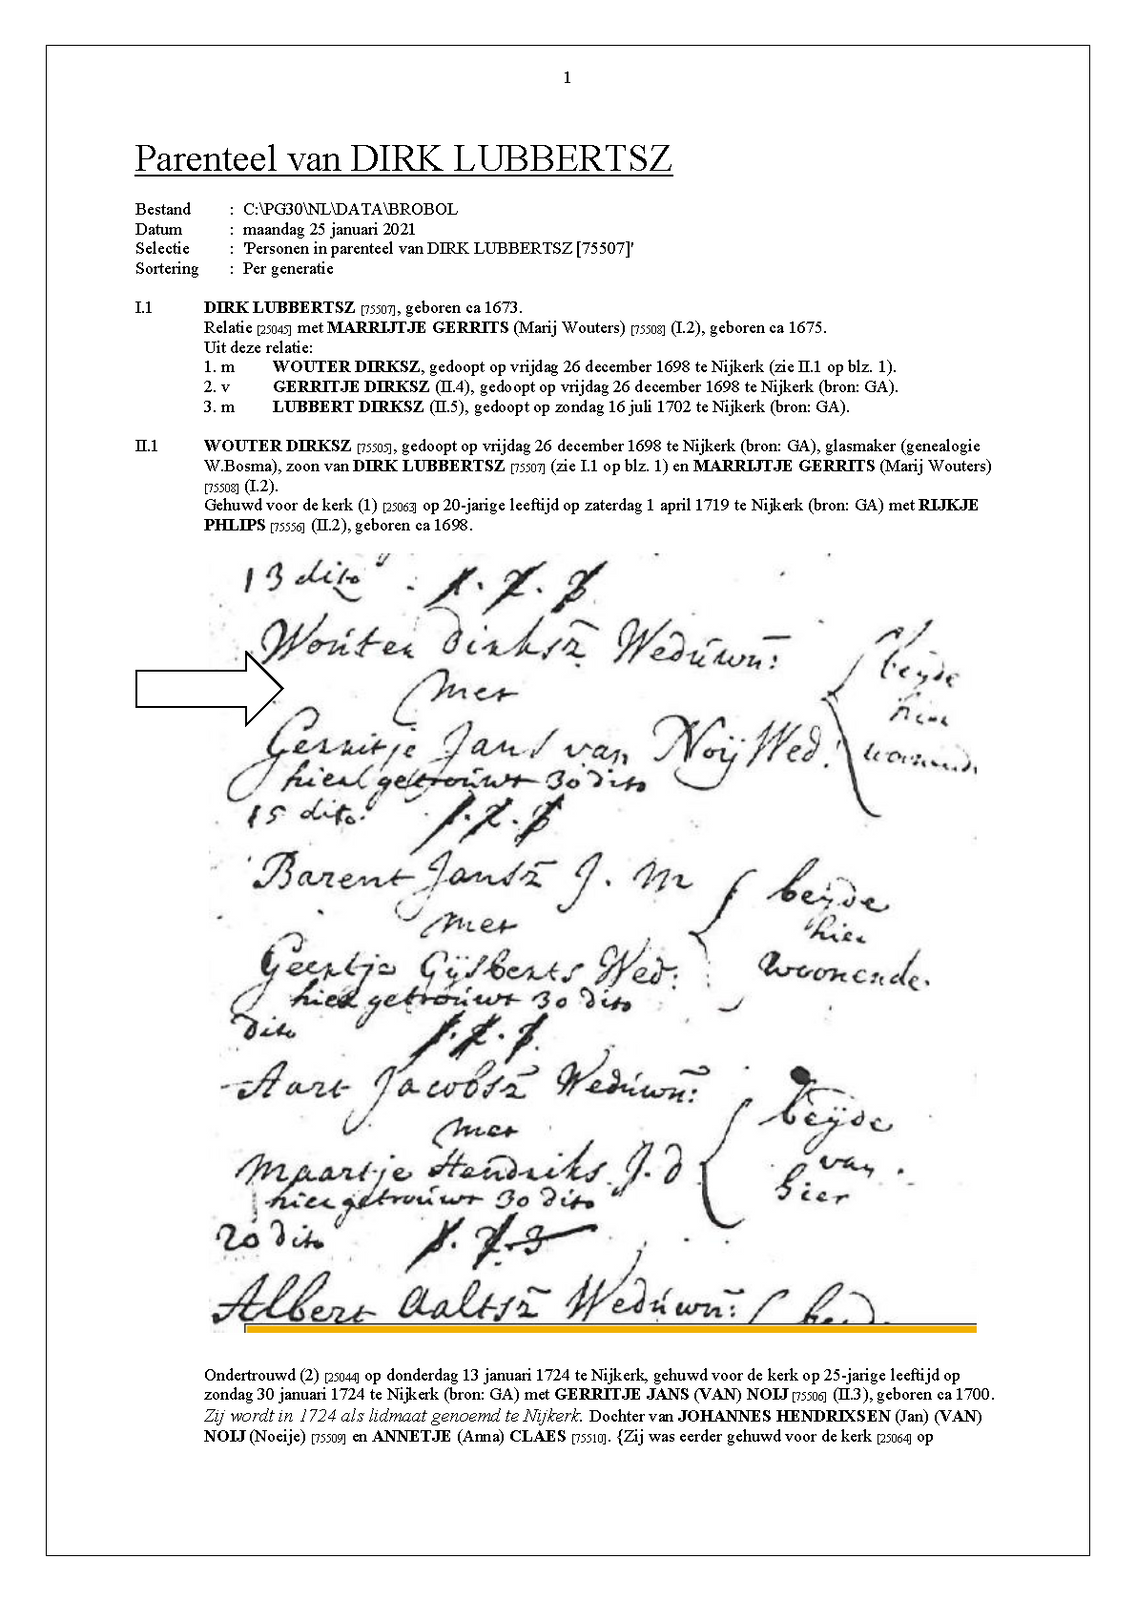 1
Parenteel van DIRK LUBBERTSZ
Bestand : C:\PG30\NL\DATA\BROBOL
Datum : maandag 25 januari 2021
Selectie : 'Personen in parenteel van DIRK LUBBERTSZ [75507]'
Sortering : Per generatie
I.1 DIRK LUBBERTSZ [75507], geboren ca 1673.
Relatie [25045] met MARRIJTJE GERRITS (Marij Wouters) [75508] (I.2), geboren ca 1675.
Uit deze relatie:
1. m WOUTER DIRKSZ, gedoopt op vrijdag 26 december 1698 te Nijkerk (zie II.1 op blz. 1).
2. v GERRITJE DIRKSZ (II.4), gedoopt op vrijdag 26 december 1698 te Nijkerk (bron: GA).
3. m LUBBERT DIRKSZ (II.5), gedoopt op zondag 16 juli 1702 te Nijkerk (bron: GA).
II.1 WOUTER DIRKSZ [75505], gedoopt op vrijdag 26 december 1698 te Nijkerk (bron: GA), glasmaker (genealogie
W.Bosma), zoon van DIRK LUBBERTSZ [75507] (zie I.1 op blz. 1) en MARRIJTJE GERRITS (Marij Wouters)
[75508] (I.2).
Gehuwd voor de kerk (1) [25063] op 20-jarige leeftijd op zaterdag 1 april 1719 te Nijkerk (bron: GA) met RIJKJE
PHLIPS [75556] (II.2), geboren ca 1698.
13 dito
Wouter Dirksz Weduwn: beyde
met hier
Gerritje Jans van Noij Wed: woonend
hier getrouwt 30 dito
15 dito.
Barent Jansz J. m beyde
met hier
Geertje Gijsberts Wed: woonende.
hier getrouwt 30 dito
dito
Aart Jacobsz Weduwn: beyde
met van
Maartje Hendriks J. d hier
hier getrouwt 30 dito
20 dito
Albert Aaltsz Weduwn: beyd
Ondertrouwd (2) [25044] op donderdag 13 januari 1724 te Nijkerk, gehuwd voor de kerk op 25-jarige leeftijd op
zondag 30 januari 1724 te Nijkerk (bron: GA) met GERRITJE JANS (VAN) NOIJ [75506] (II.3), geboren ca 1700.
Zij wordt in 1724 als lidmaat genoemd te Nijkerk. Dochter van JOHANNES HENDRIXSEN (Jan) (VAN)
NOIJ (Noeije) [75509] en ANNETJE (Anna) CLAES [75510]. {Zij was eerder gehuwd voor de kerk [25064] op